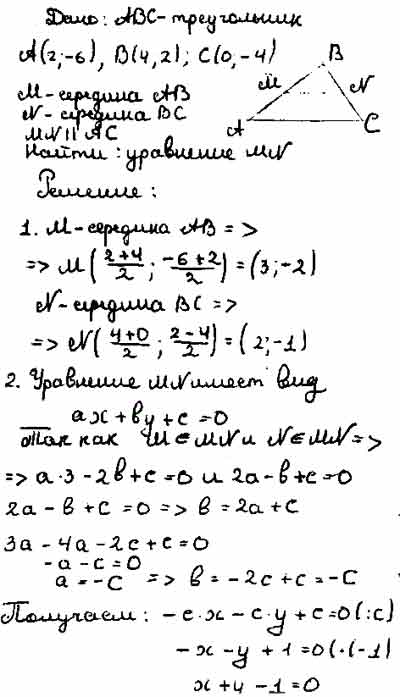 Дано: ABC-треугольник
A(2;-6), B(4,2); C(0,-4)
M-середина AB
N-середина BC
MN || AC
Найти: уравнение MN
B
M
N
A
C
Решение:
1. M-середина AB =>
=> M((2+4)/2; (-6+2)/2) = (3;-2)
N-середина BC =>
=> N((4+0)/2; (2-4)/2) = (2;-1)
2. Уравнение MN имеет вид
ax+by+c=0
Так как M∈MN и N∈MN =>
=> a·3-2b+c=0 и 2a-b+c=0
2a-b+c=0 => b=2a+c
3a-4a-2c+c=0
-a-c=0
a=-c => b=-2c+c=-c
Получаем: -c·x-c·y+c=0(:c)
-x-y+1=0(·(-1)
x+y-1=0